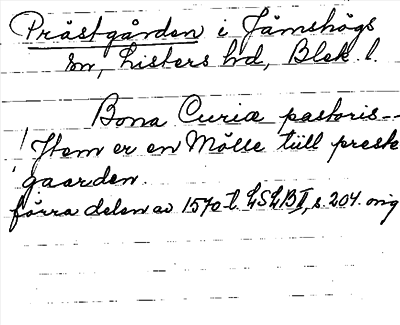 Prästgården i Jämshögs
sn, Listers hd, Blek. l.
Bona Curiæ pastoris--
! Item er en Mölle tiill prest
gaarden.
förra delen av 1570-t. LSLB II, s. 204. orig